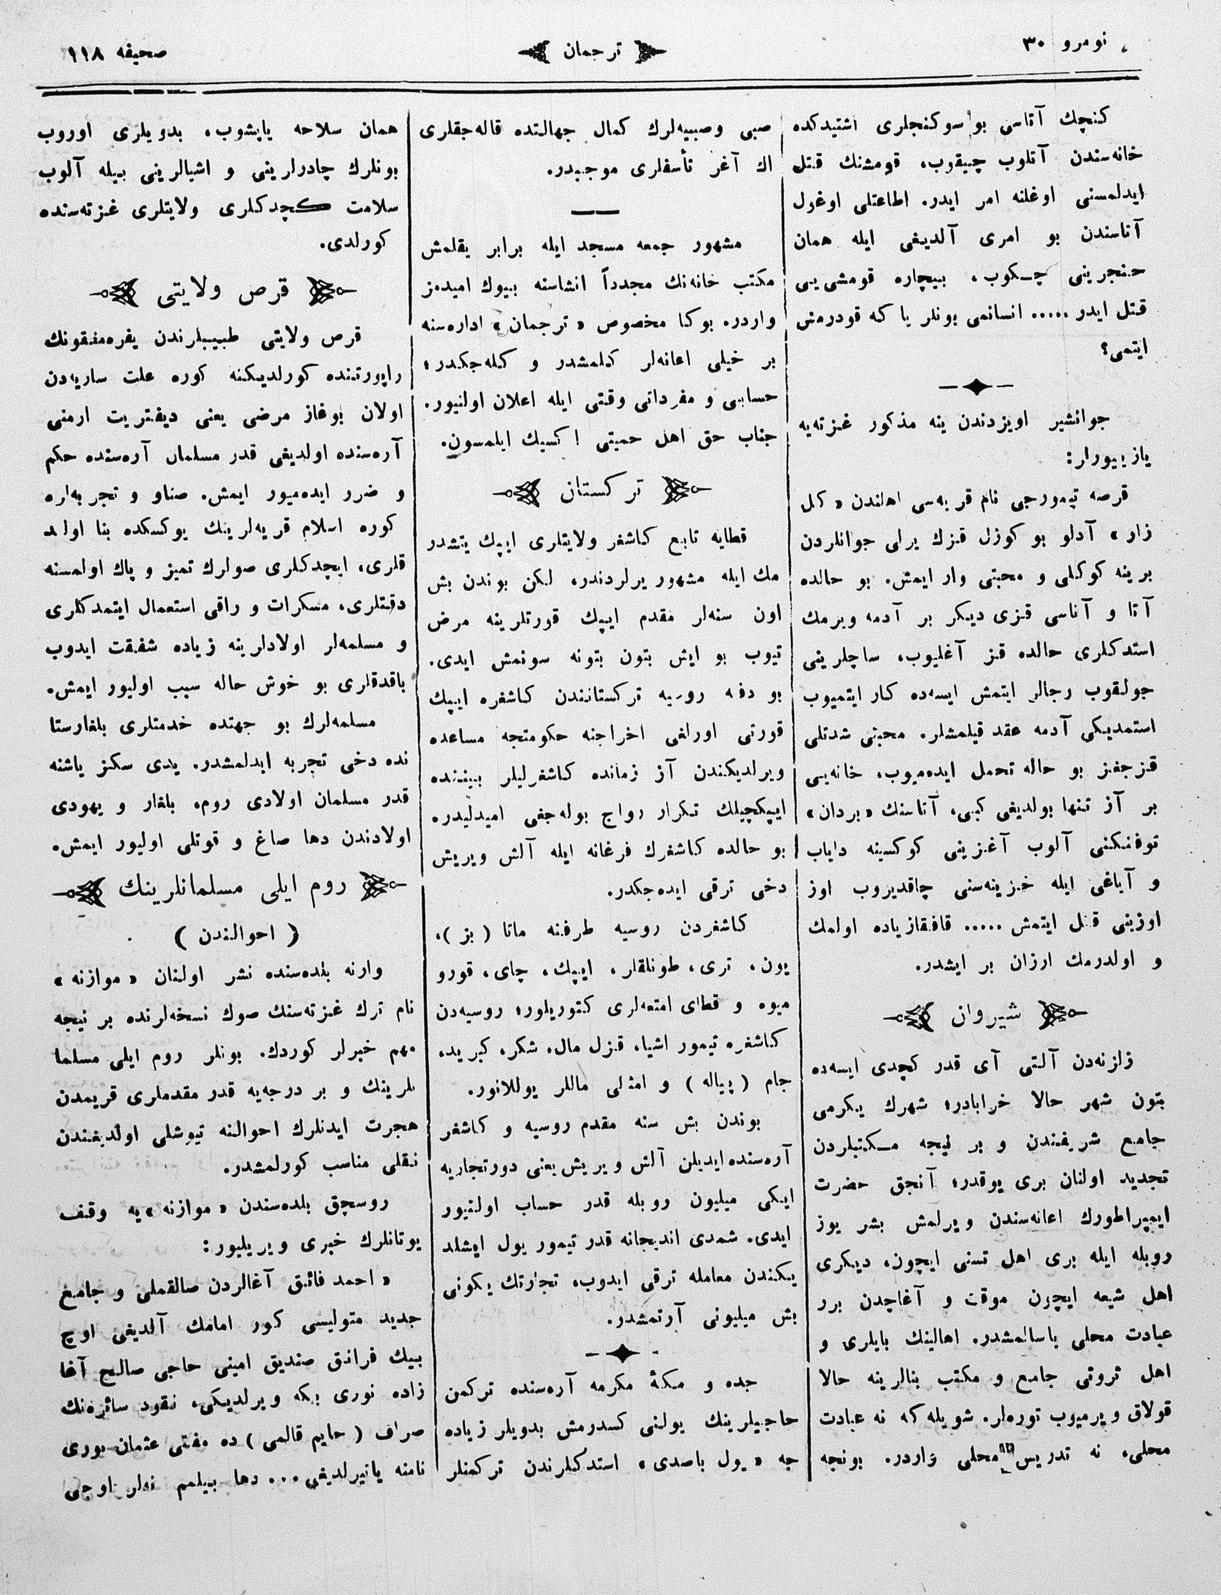 نومرو ٣٠
ترجمان
صحیفه ١١٨
كنچك آتاسی بو سوكنجلری اشتیدكده
خانه‌سندن آتلوب چیقوب، قومشنك قتل
ایدلمسنی اوغلنه امر ایدر. اطاعتلی اوغول
آتاسندن بو امری آلدیغی ایله همان
خنجرینی چـكوب، بیچاره قومشیی
قتل ایدر ..... انسانمی بونلر یا كه قودرمش
ایتمی؟
جوانشیر اویزدندن ینه مذكور غزته‌یه
یازییورلر:
قرصه تیمورجی نام قریه‌سی اهلندن «كل
زار» آدلو بو كوزل قزك یرلی جوانلردن
برینه كوكلی و محبتی وار ایمش. بو حالده
آتا و آناسی قزی دیكر بر آدمه ویرمك
استدكلری حالده قز آغلیوب، ساچلرینی
جولقوب رجالر ایتمش ایسه‌ده كار ایتمیوب
استمدیكی آدمه عقد قیلمشلر. محبتی شدتلی
قزجغز بو حاله تحمل ایده‌میوب، خانه‌یی
بر آز تنها بولدیغی كبی، آتاسنك «بردان»
توفنكنی آلوب آغزینی كوكسینه دایاب
و آیاغی ایله خزینه‌سنی چاقدیروب اوز
اوزینی قتل ایتمش ..... قافقازیاده اولمك
و اولدرمك ارزان بر ایشدر.
شیروان
زلزله‌دن آلتی آی قدر كچدی ایسه‌ده
بتون شهر حالا خرابادر؛ شهرك یكرمی
جامع شریفندن و بر نیجه مـكتبلردن
تجدید اولنان بری یوقدر؛ آنجق حضرت
ایمپراطورك اعانه‌سندن ویرلمش بشر یوز
روبله ایله بری اهل تسنی ایچون، دیكری
اهل شیعه ایچون موقت و آغاچدن برر
عبادت محلی یاسالمشدر. اهالینك بایلری و
اهل ثروتی جامع و مكتب بنالرینه حالا
قولاق ویرمیوب توره‌لر. شویله كه نه عبادت
محلی، نه تدریس محلی واردر. بونجه
صبی وصبیه‌لرك كمال جهالتده قاله‌جقلری
اك آغر تأسفلری موجبدر.
مشهور جمعه مسجد ایله برابر یقلمش
مكتب خانه‌نك مجدداً انشاسنه بیوك امیدمز
واردر. بوكا مخصوص «ترجمان» اداره‌سنه
بر خیلی اعانه‌لر كلمشدر و كله‌جكدر؛
حسابی و مفرداتی وقتی ایله اعلان اولنیور.
جناب حق اهل حمیتی اكسیك ایلمسون.
تركستان
قطایه تابع كاشغر ولایتلری ایپك یتشدر
مك ایله مشهور یرلردندر، لكن بوندن بش
اون سنه‌لر مقدم ایپك قورتلرینه مرض
تیوب بو ایش بتون بتونه سونمش ایدی.
بو دفه روسیه تركستانندن كاشغره ایپك
قورتی اورلغی اخراجنه حكومتجه مساعده
ویرلدیكندن آز زمانده كاشغرلیلر بیننده
ایپكچیلك تكرار رواج بوله‌جغی امیدلیدر.
بو حالده كاشغرك فرغانه ایله آلش ویریش
دخی ترقی ایده‌جكدر.
كاشغردن روسیه طرفنه ماتا (بز)،
یون، تری، طونلقلر، ایپك، چای، قورو
میوه و قطای امتعه‌لری كتوریلور؛ روسیه‌دن
كاشغره تیمور اشیا، قزل مال، شكر، كبرید،
جام (پیاله) و امثلی ماللر یوللانور.
بوندن بش سنه مقدم روسیه و كاشغر
آره‌سنده ایدیلن آلش ویریش یعنی دور تجاریه
ایكی میلیون روبله قدر حساب اولنیور
ایدی. شمدی اندیجانه قدر تیمور یول ایشلد
یكندن معامله ترقی ایدوب، تجارتك یكونی
بش میلیونی آرتمشدر.
جده و مكهٔ مكرمه آره‌سنده تركمن
حاجیلرینك یولنی كسدرمش بدویلر زیاده
جه «یول باصدی» استدكلرندن تركمنلر
همان سلاحه یاپشوب، بدویلری اوروب
بونلرك چادرلرینی و اشیالرینی بیله آلوب
سلامت كچدكلری ولایتلری غزته‌سنده
كورلدی.
قرص ولایتی
قرص ولایتی طبیبلرندن یفره‌منقونك
راپورتنده كورلدیكنه كوره علت ساریه‌دن
اولان بوغاز مرضی یعنی دیفتریت ارمنی
آره‌سنده اولدیغی قدر مسلمان آره‌سنده حكم
و ضرر ایده‌میور ایمش. صناو و تجربه‌لره
كوره اسلام قریه‌لرینك یوكسكده بنا اولند
قلری، ایچدكلری صولرك تمیز و پاك اولمسنه
دقتلری، مسكرات و راقی استعمال ایتمدكلری
و مسلمه‌لر اولادلرینه زیاده شفقت ایدوب
باقدقلری بو خوش حاله سبب اولیور ایمش.
مسلمه‌لرك بو جهتده خدمتلری بلغارستا
نده دخی تجربه ایدلمشدر. یدی سكز یاشنه
قدر مسلمان اولادی روم، بلغار و یهودی
اولادندن دها صاغ و قوتلی اولیور ایمش.
روم ایلی مسلمانلرینك
(احوالندن)
وارنه بلده‌سنده نشر اولنان «موازنه»
نام ترك غزته‌سنك صوك نسخه‌لرنده بر نیجه
مهم خبرلر كوردك. بونلر روم ایلی مسلما
نلرینك و بر درجه‌یه قدر مقدملری قریمدن
هجرت ایدنلرك احوالنه تیوشلی اولدیغندن
نقلی مناسب كورلمشدر.
روسچق بلده‌سندن «موازنه»یه وقف
یوتانلرك خبری ویریلیور:
«احمد فائق آغالردن صالقملی و جامع
جدید متولیسی كور امامك آلدیغی اوچ
بیك فرانق صندیق امینی حاجی صالح آغا
زاده نوری بكه ویرلدیكی، نقود سائره‌نك
صراف (حایم قالمی) ده مفتی عثمان نوری
نامنه یاتیرلدیغی... دها بیلمم نه‌لر اوجی